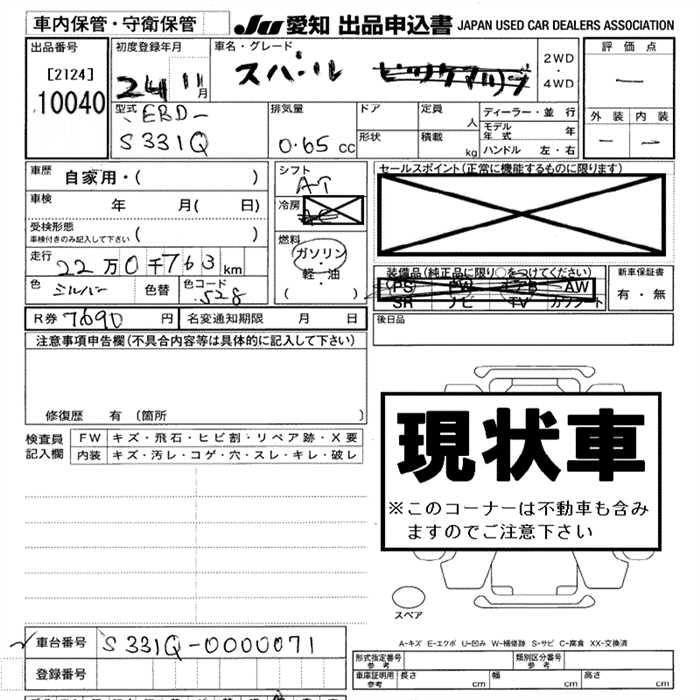 車内保管・守衛保管
JU 愛知 出品申込書 JAPAN USED CAR DEALERS ASSOCIATION
出品番号
[2124]
10040
初度登録年月
24 11月
車名・グレード
スバル
2WD
・
4WD
評価点
—
外装 内装
— —
型式
-EBD-
S331Q
排気量
0.65 cc
ドア
形状
定員
人
積載
kg
ディーラー・並行
モデル年式 年
ハンドル 左・右
車歴 自家用・( )
車検 年 月( 日)
受検形態
車検付きのみ記入して下さい ( )
走行 22万0千763km
色 シルバー 色替 色コード S28
R券 7690 円 名変通知期限 月 日
シフト
AT
冷房
燃料
ガソリン
・
軽・油
( )
セールスポイント(正常に機能するものに限ります)
装備品(純正品に限り○をつけてください)
PS PW エアB AW
SR ナビ TV カワシート
新車保証書
有・無
後日品
注意事項申告欄(不具合内容等は具体的に記入して下さい)
修復歴 有 (箇所 )
検査員記入欄
FW キズ・飛石・ヒビ割・リペア跡・X要
内装 キズ・汚レ・コゲ・穴・スレ・キレ・破レ
現状車
※このコーナーは不動車も含み
ますのでご注意下さい
スペア
A-キズ E-エクボ U-凹み W-補修跡 S-サビ C-腐食 XX-交換済
車台番号 S331Q-0000071
登録番号
形式指定番号
参考
類別区分番号
参考
車庫証明用
参考
長さ cm 幅 cm 高さ cm